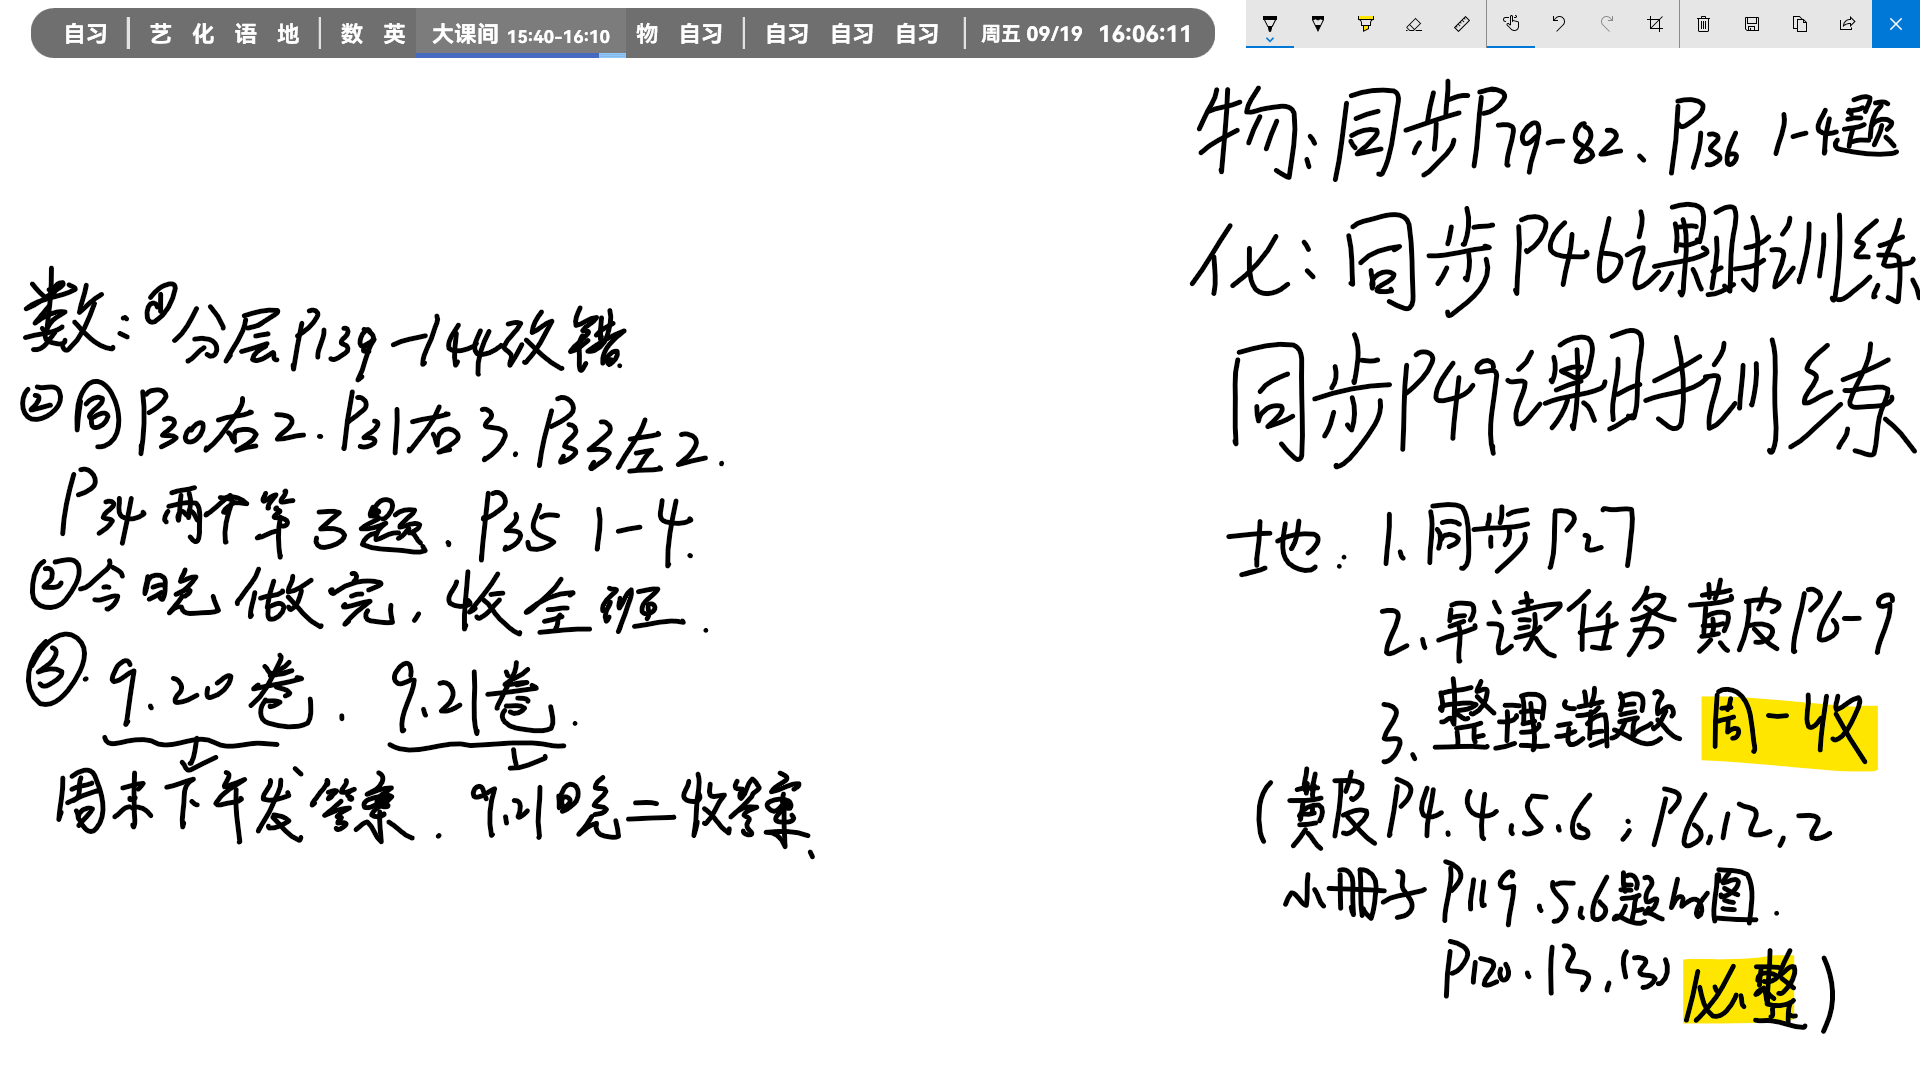 自习 | 艺 化 语 地 | 数 英 大课间 15:40-16:10 物 自习 | 自习 自习 自习 | 周五 09/19 16:06:11
数:①分层P139-144改错.
②同P30右2.P31右3.P33左2.
P34两个第3题.P35 1-4.
②今日晚做完,收全班.
③.9.20卷.9.21卷.
周末下午发答案.9.21日晚二收答案.
物:同步P79-82、P136 1-4题
化:同步P46课时训练
同步P49课时训练
地:1、同步P27
2、早读任务黄皮P6-9
3、整理错题 周一收
(黄皮P4.4.5.6;P6.12,2
小册子P119.5.6题的图.
P120.13,(3) 必整)